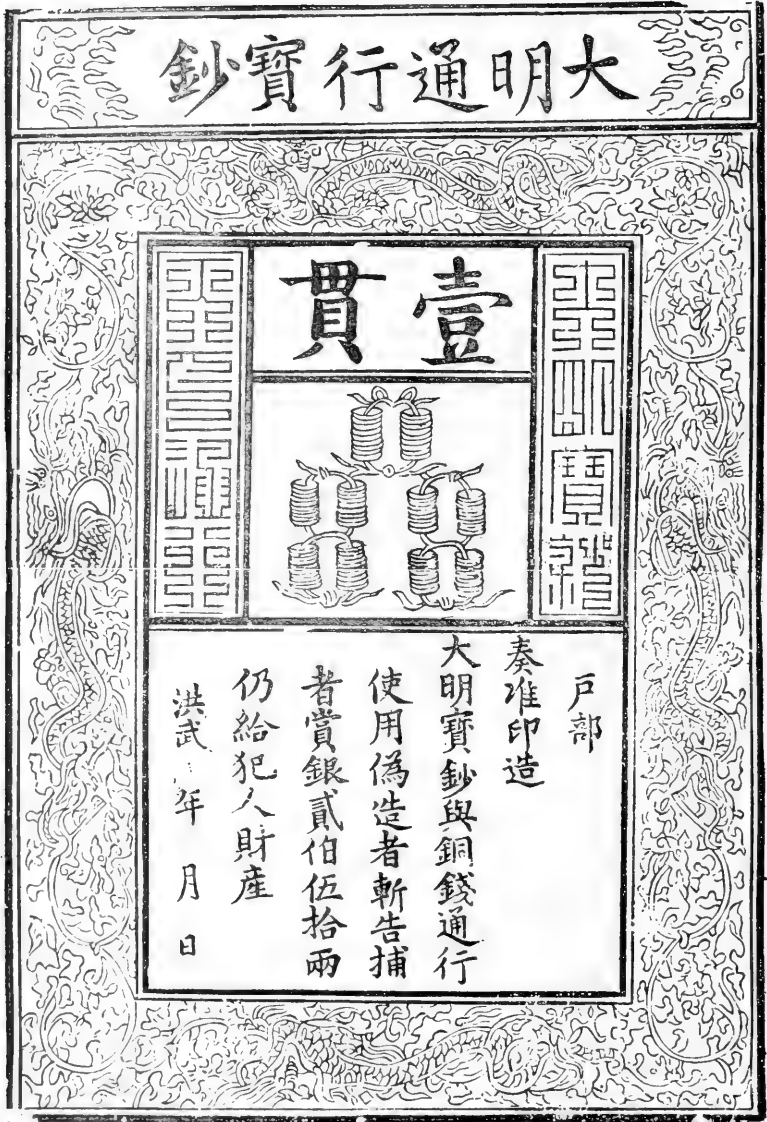 大明通行寶鈔
壹貫
大明寶鈔
天下通行
户部
奏准印造
大明寶鈔與銅錢通行
使用僞造者斬告捕
者賞銀貳伯伍拾兩
仍給犯人財産
洪武 年 月 日